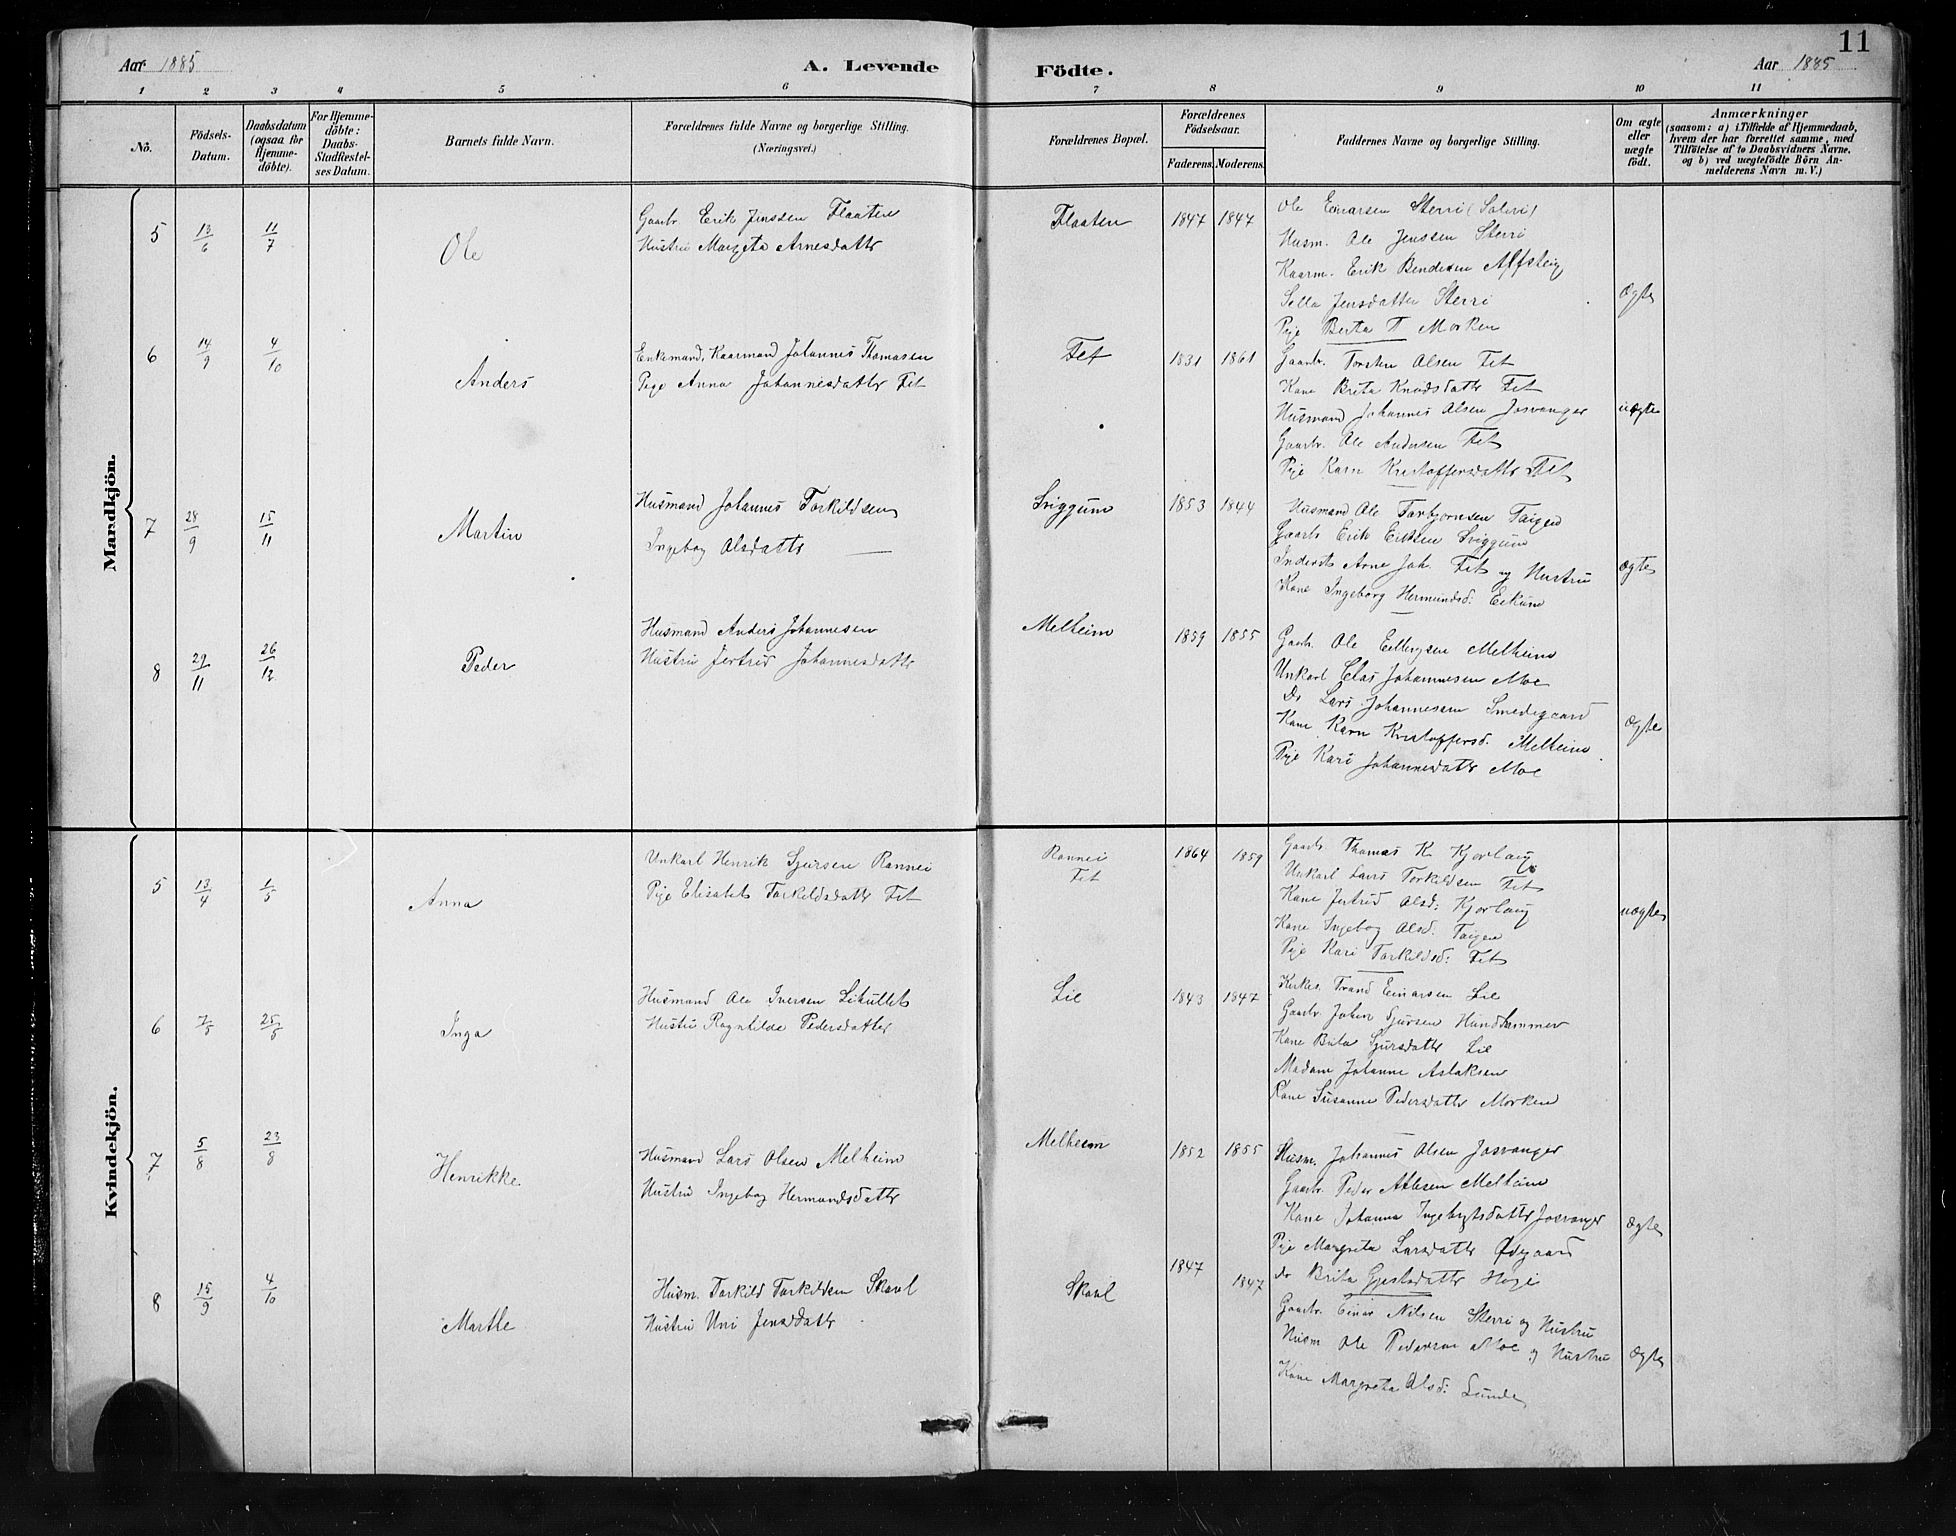 11
Aar 1885 A. Levende Födte. Aar 1885
1 2 3 4 5 6 7 8 9 10 11
No. Födsels-Datum. Daabsdatum (ogsaa for Hjemmedöbte). For Hjemmedöbte: Daabs-Stadfestelses Datum. Barnets fulde Navn. Forældrenes fulde Navne og borgerlige Stilling. (Næringsvei.) Forældrenes Bopæl. Forældrenes Födselsaar. Faderens. Moderens. Faddernes Navne og borgerlige Stilling. Om ægte eller uægte födt. Anmærkninger (saasom: a) i Tilfælde af Hjemmedaab, hvem der har forrettet samme, med Tilföielse af to Daabsvidners Navne, og b) ved uægtefödte Börn Anmelderens Navn m.V.)
Mandkjön.
5 13/6 11/7 Ole
Gaarbr Erik Jenssen Flaaten
Hustru Margeta Arnesdattr
Flaaten 1847 1847
Ole Einarsen Sterri
Husm. Ole Jenssen Sterri
Kaarm. Erik Bendixen
Jensdatter Sterri
Pige Berta T Morken
Ægte
6 14/9 4/10 Anders
Enkemand, Kaarmand Johannes Thomasen
Pige Anna Johannesdattr Fet
Fet 1831 1861
Gaarbr. Torsten Olsen Fet
Kone Brita Knudsdattr Fet
Husmand Johannes Olsen Josvanger
Gaarbr. Ole Andersen Fet
Pige Karn Kristoffersdattr Fet
uægte
7 28/9 15/11 Martin
Husmand Johannes Torkildsen
Ingebog Olsdattr —
Sviggum 1853 1844
Husmand Ole Torbjornsen Taigen
Gaarbr Erik Eriksen Sviggum
Inderst Arne Joh. Fet og Hustru
Kone Ingeborg Hermundsd: Eikum
Ægte
8 29/11 26/12 Peder
Husmand Anders Johannesen
Hustru Jertrud Johannesdattr
Melheim 1859 1855
Gaarbr. Ole Ellingsen Melheim
Unkarl Elas Johannesen Moe
Do Lars Johannesen Smedegaard
Kone Karn Kristoffersd. Melheim
Pige Kari Johannesdattr Moe
Ægte
Kvindekjön.
5 13/4 1/5 Anna
Unkarl Henrik Sjursen Rønnei
Pige Elisabet Torkildsdattr Fet
Rønnei
Fet
1864 1859
Gaarbr. Thomas K Kjorlaug
Unkarl Lars Torkildsen Fet
Kone Jertrud Olsd: Kjorlaug
Kone Ingebog Olsd. Taigen
Pige Kari Torkildsd: Fet
uægte
6 25/5 Inga
Husmand Ole Iversen
Hustru Ragnhilde Pedersdatter
Lie 1843 1847
Kirkes. Trond Einarsen Lie
Gaarbr. Johan Sjursen Hundhammer
Kone Brita Sjursdattr Lie
Madam Johanne Aslaksen
Kone Susanne Pedersdattr Morken
7 5/8 23/8 Henrikke
Husmand Lars Olsen Melheim
Hustru Ingebog Hermundsdattr
Melheim 1852 1855
Husm. Johannes Olsen Josvanger
Gaarbr. Peder Atlesen Melheim
Kone Johanna Ingebrgtsdattr Josvanger
Pige Margreta Larsdattr Ødegaard
do Brita Gjestsdattr
Ægte
8 15/9 4/10 Marthe
Husm. Torkild Torkildsen Skaul
Hustru Uni Jensdattr
Skaul 1847 1847
Gaarbr. Einar Nilsen Sterri og Hustru
Husm Ole Pedersen Moe og Hustru
Kone Margreta Olsd: Lunde
Ægte